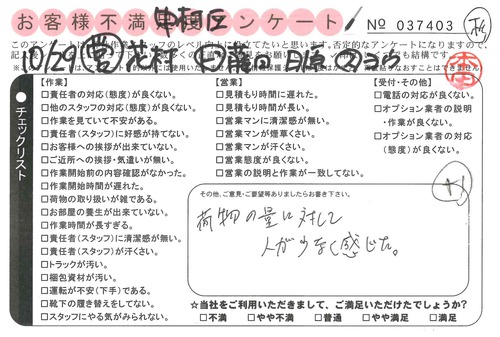 お客様不満
ンケート
No 037403
10/29
チェックリスト
【作業】
□責任者の対応(態度)が良くない。
□他のスタッフの対応(態度)が良くない。
□作業を見ていて不安がある。
□責任者(スタッフ)に好感が持てない。
□お客様への挨拶が出来ていない。
□ご近所への挨拶・気遣いが無い。
□作業開始前の内容確認がなかった。
□作業開始時間が遅れた。
□荷物の取り扱いが雑である。
□お部屋の養生が出来ていない。
□作業時間が長すぎる。
□責任者(スタッフ)に清潔感が無い。
□責任者(スタッフ)が汗くさい。
□トラックが汚い。
□梱包資材が汚い。
□運転が不安(下手)である。
□靴下の履き替えをしてない。
□スタッフにやる気がみられない。
【営業】
□見積もり時間に遅れた。
□見積もり時間が長い。
□営業マンに清潔感が無い。
□営業マンが煙草くさい。
□営業マンが汗くさい。
□営業態度が良くない。
□営業の説明と作業が一致してない。
【受付・その他】
□電話の対応が良くない。
□オプション業者の説明
・作業が良くない。
□オプション業者の対応
(態度)が良くない。
その他、ご意見・ご要望等ありましたらお書き下さい。
荷物の量に対して
人が少なく感じた。
☆当社をご利用いただきまして、ご満足いただけたでしょうか?
□不満 □やや不満 □普通 □やや満足 □満足